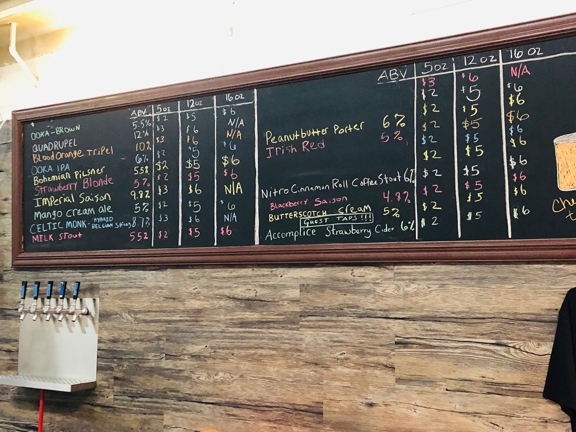 ABV 5oz 12oz 16oz
OOKA-BROWN 5.5% $2 $5 $6
QUADRUPEL 12% $3 $6 N/A
Blood Orange Tripel 10% $3 $6 N/A
OOKA IPA 6% $2 $5 $6
Bohemian Pilsner 5.5% $2 $5 $6
Strawberry Blonde 5% $2 $5 $6
Imperial Saison 9.8% $3 $6 N/A
Mango cream ale 5% $2 $5 $6
CELTIC MONK- HYBRID BELGIAN 8.7% $3 $6 N/A
MILK STOUT 5.5% $2 $5 $6
ABV 5oz 12oz 16oz
$3 $6 N/A
$2 $5 $6
$2 $5 $6
Peanutbutter Porter 6% $2 $5 $6
Irish Red 5% $2 $5 $6
$2 $5 $6
$2 $5 $6
Nitro Cinnamon Roll Coffee Stout 6% $2 $5 $6
Blackberry Saison 4.8% $2 $5 $6
BUTTERSCOTCH CREAM 5% $2 $5 $6
GUEST TAPS!!!
Accomplice Strawberry Cider 6% $2 $5 $6